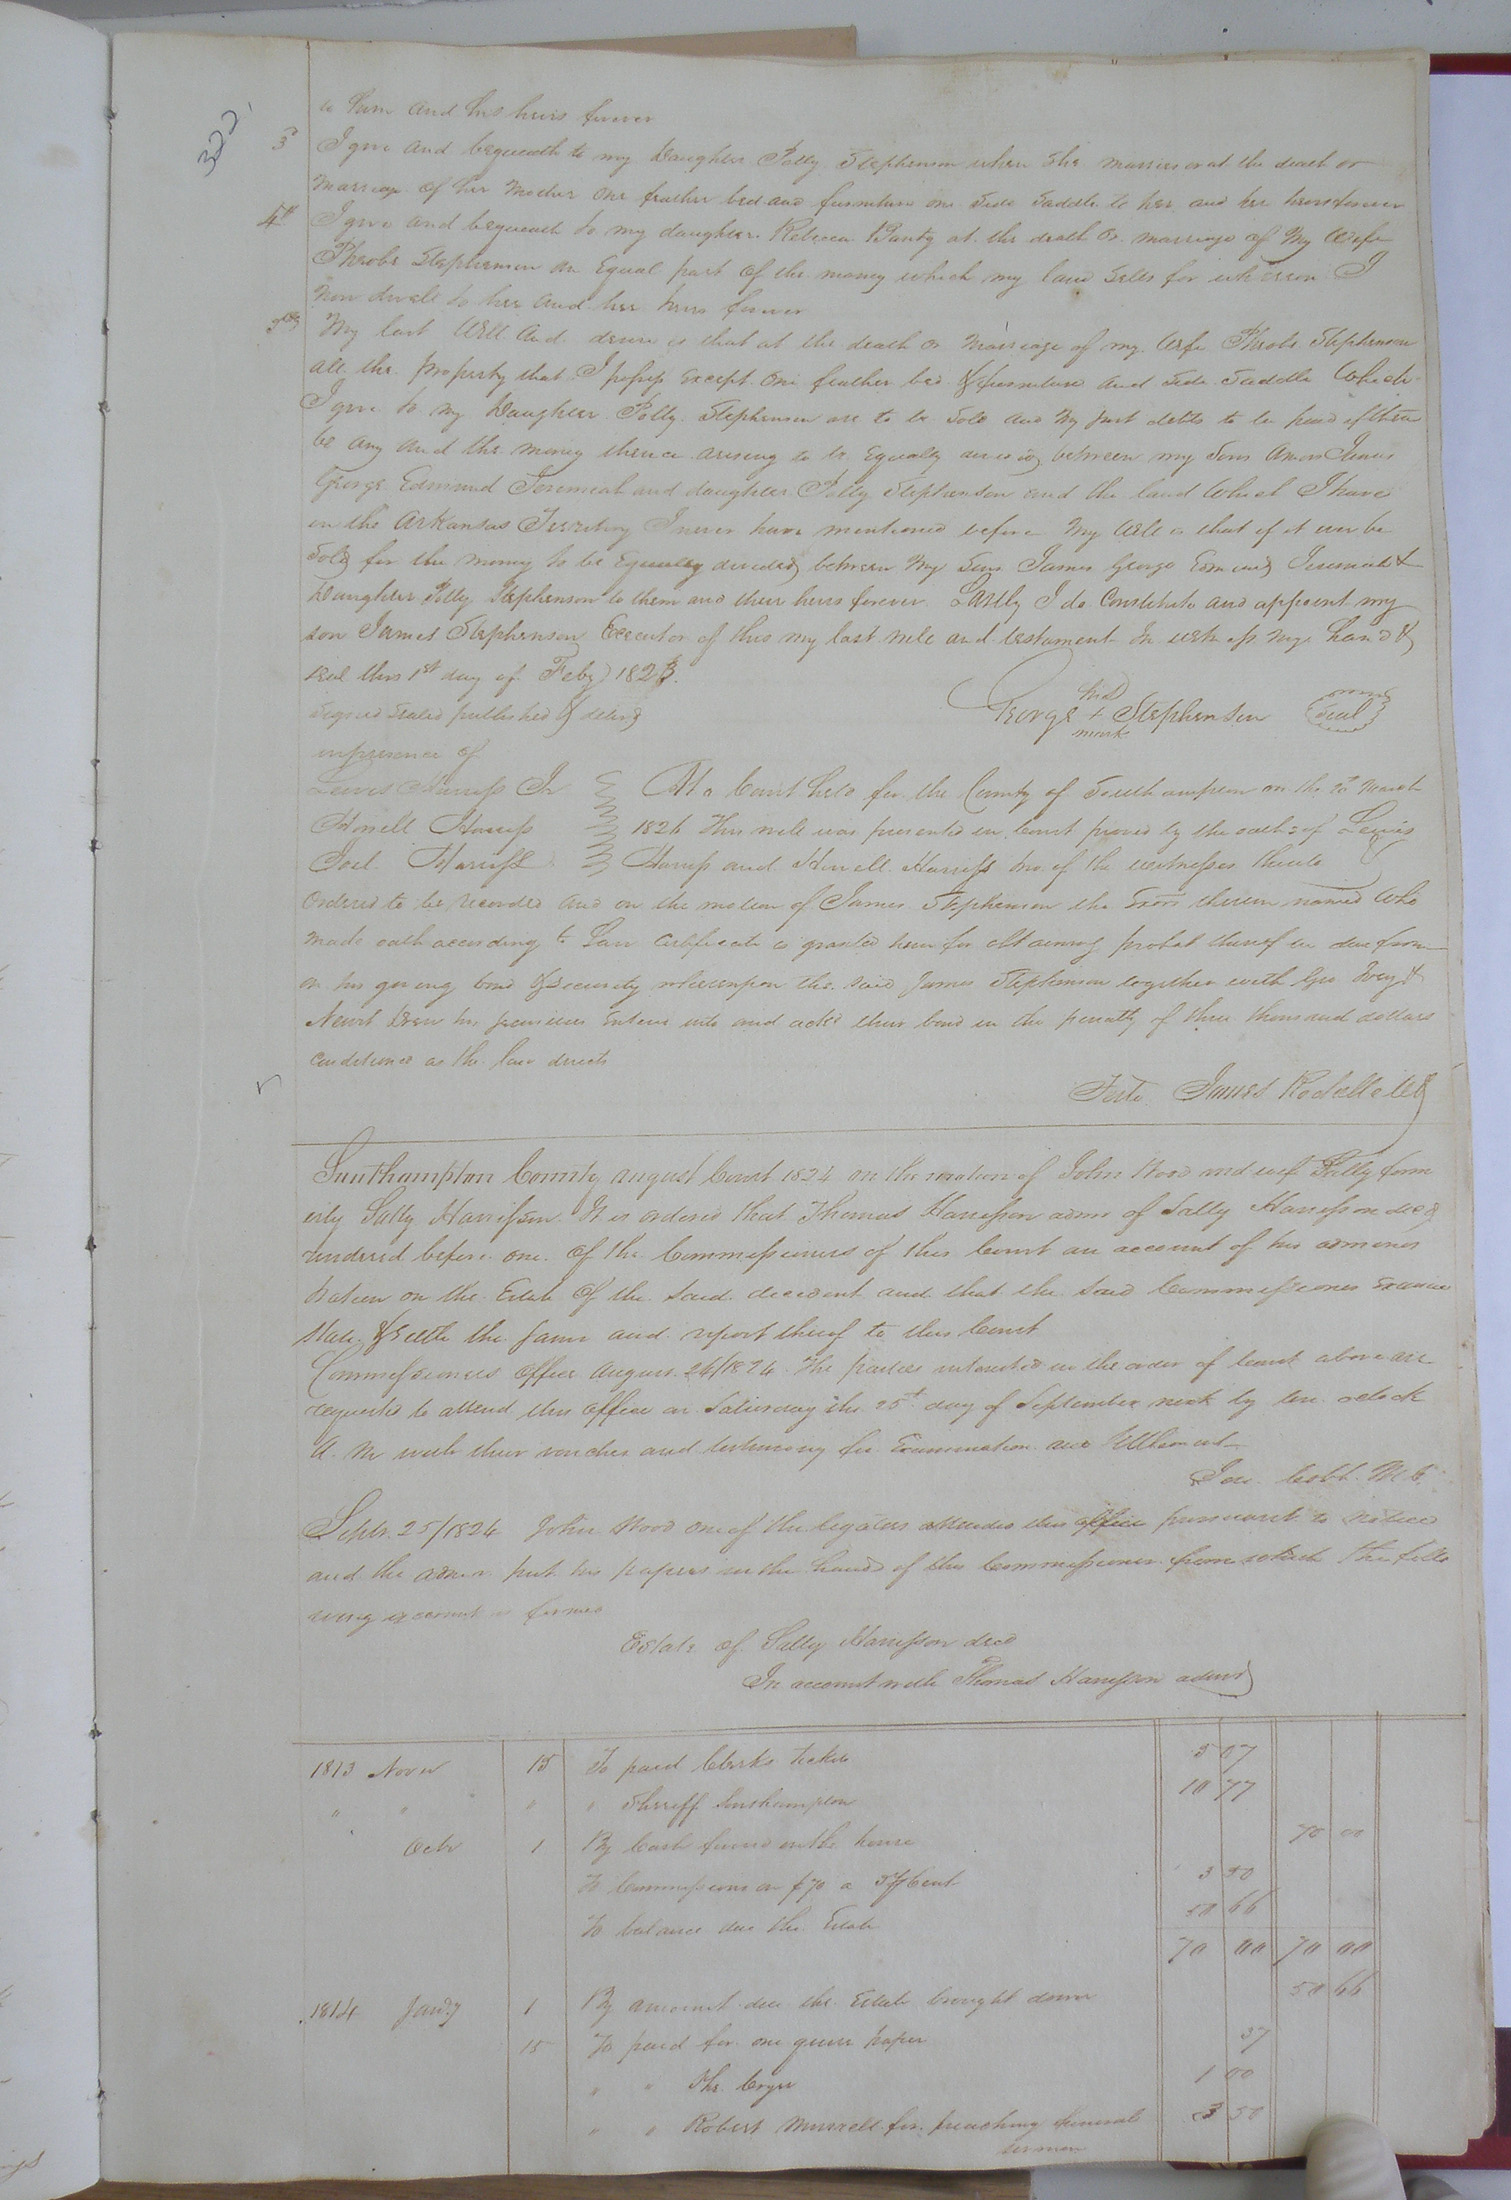 322
to him and his heirs forever
3d I give and bequeath to my Daughter Polly Stephenson when she marries or at the death or
marriage of her Mother one feather bed and furniture one side saddle to her and her heirs forever
4th I give and bequeath to my daughter Rebecca at the death or marriage of My Wife
Pheobe Stephenson an Equal part of the money which my land sells for whereon I
now dwell to her and her heirs forever
My last Will and desire is that at the death or marriage of my wife Pheobe Stephenson
all the property that I possess Except one feather bed & furniture and side saddle Which
I give to my Daughter Polly Stephenson are to be sold and my just debts to be paid if there
be any and the money thence arising to be Equally between my Sons Amos James
George Edmund Jeremiah and daughter Polly Stephenson and the land Which I have
in the Arkansas Territory I never have mentioned before My Will is that if it ever be
sold for the money to be Equally divided between My Sons James George Edmund Jeremiah &
Daughter Polly Stephenson to them and their heirs forever. Lastly I do Constitute and appoint my
son James Stephenson Executor of this my last will and testament In witness my hand &
seal this 1st day of Feby 1823.
Signed Sealed published & delivd
in presence of
George his + mark Stephenson (Seal)
Lewis Harriss Jr At a Court held for the County of Southampton on the March
Howell Harriss 1826 This will was presented in Court proved by the oaths of Lewis
Joel Harriss Harriss and Howell Harriss two of the witnesses thereto
Ordered to be recorded and on the motion of James Stephenson the Exor therein named Who
made oath according to Law Certificate is granted him for obtaining probat thereof in due form
on his giving bond & security whereupon the said James Stephenson together with Geo Ivey &
Newit Drew his securities Entered into and ackd their bond in the penalty of three thousand dollars
conditioned as the law directs
Teste James Rochelle Clk
Southampton County August Court 1824 on the motion of John Wood and wife Sally form
erly Sally Harrisson. It is ordered that Thomas Harrisson admr of Sally Harrisson decd
rendered before one of the Commissioners of this Court an account of his adminis
tration on the Estate of the said decedent and that the said Commissioner Examine
State & Settle the same and report thereof to this Court
Commissioners Office August 26/1824 The parties interested in the order of Court above are
requested to attend this Office on Saturday the 25th day of September next by ten oclock
A. M with their vouches and testimony for Examination and Settlement
Cobb M.C.
Septr. 25/1824 John Wood one of the legatees attended this office pursuant to notice
and the admr put his papers in the hands of this Commissioner from which the follo
wing account is formed
Estate of Sally Harrisson decd
In account with Thomas Harrisson admr
1813 Novr 15 To paid Clerks tickets 5 07
" " " " Sheriff Southampton 10 77
" Octr 1 By Cash found in the house 70 00
To Commissions on $70 a 5 pr Cent 3 50
To balance due the Estate 50 66
70 00 70 00
1814 Jany 1 By amount due the Estate brought down 50 66
15 To paid for one quire paper 37
" " The Cryer 1 00
" " Robert Murrell for preaching funeral 3 50
sermon